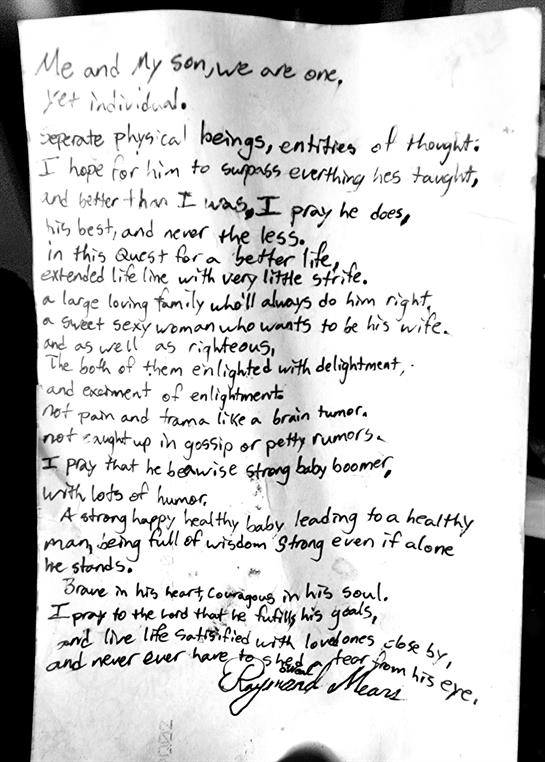 Me and My son, we are one,
yet individual.
seperate physical beings, entities of thought.
I hope for him to surpass everthing hes taught,
and better than I was, I pray he does,
his best, and never the less.
in this Quest for a better life,
extended life line with very little strife.
a large loving family who'll always do him right,
a sweet sexy woman who wants to be his wife.
and as well as righteous,
The both of them enlighted with delightment,
and exciment of enlightment.
not pain and trama like a brain tumor.
not caught up in gossip or petty rumors.
I pray that he be a wise strong baby boomer,
with lots of humor.
A strong happy healthy baby leading to a healthy
man, being full of wisdom strong even if alone
he stands.
Brave in his heart, couragous in his soul.
I pray to the Lord that he fufills his goals,
and live life satisified with loved ones close by,
and never ever have to shed a tear from his eye.
Raymond Mears